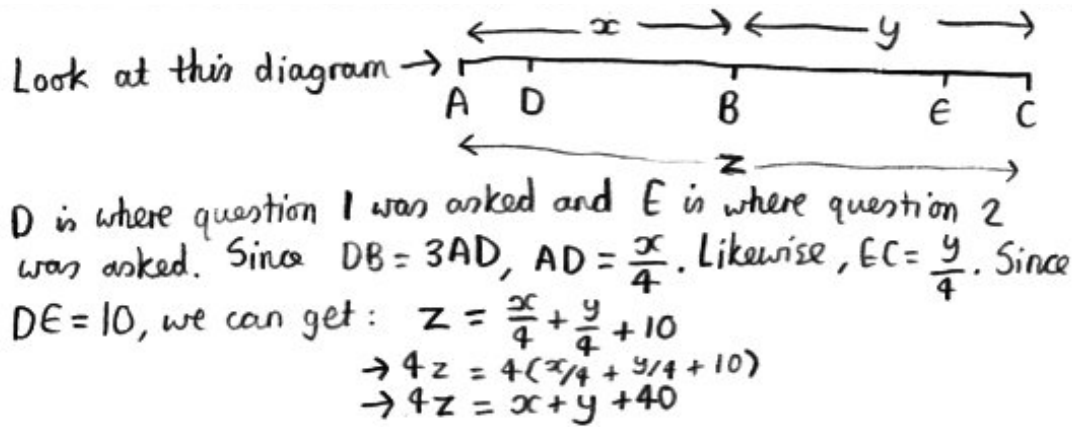 x y
Look at this diagram →
A D B E C
z
D is where question 1 was asked and E is where question 2
was asked. Since DB = 3AD, AD = x/4. Likewise, EC = y/4. Since
DE = 10, we can get: z = x/4 + y/4 + 10
→ 4z = 4(x/4 + y/4 + 10)
→ 4z = x + y + 40